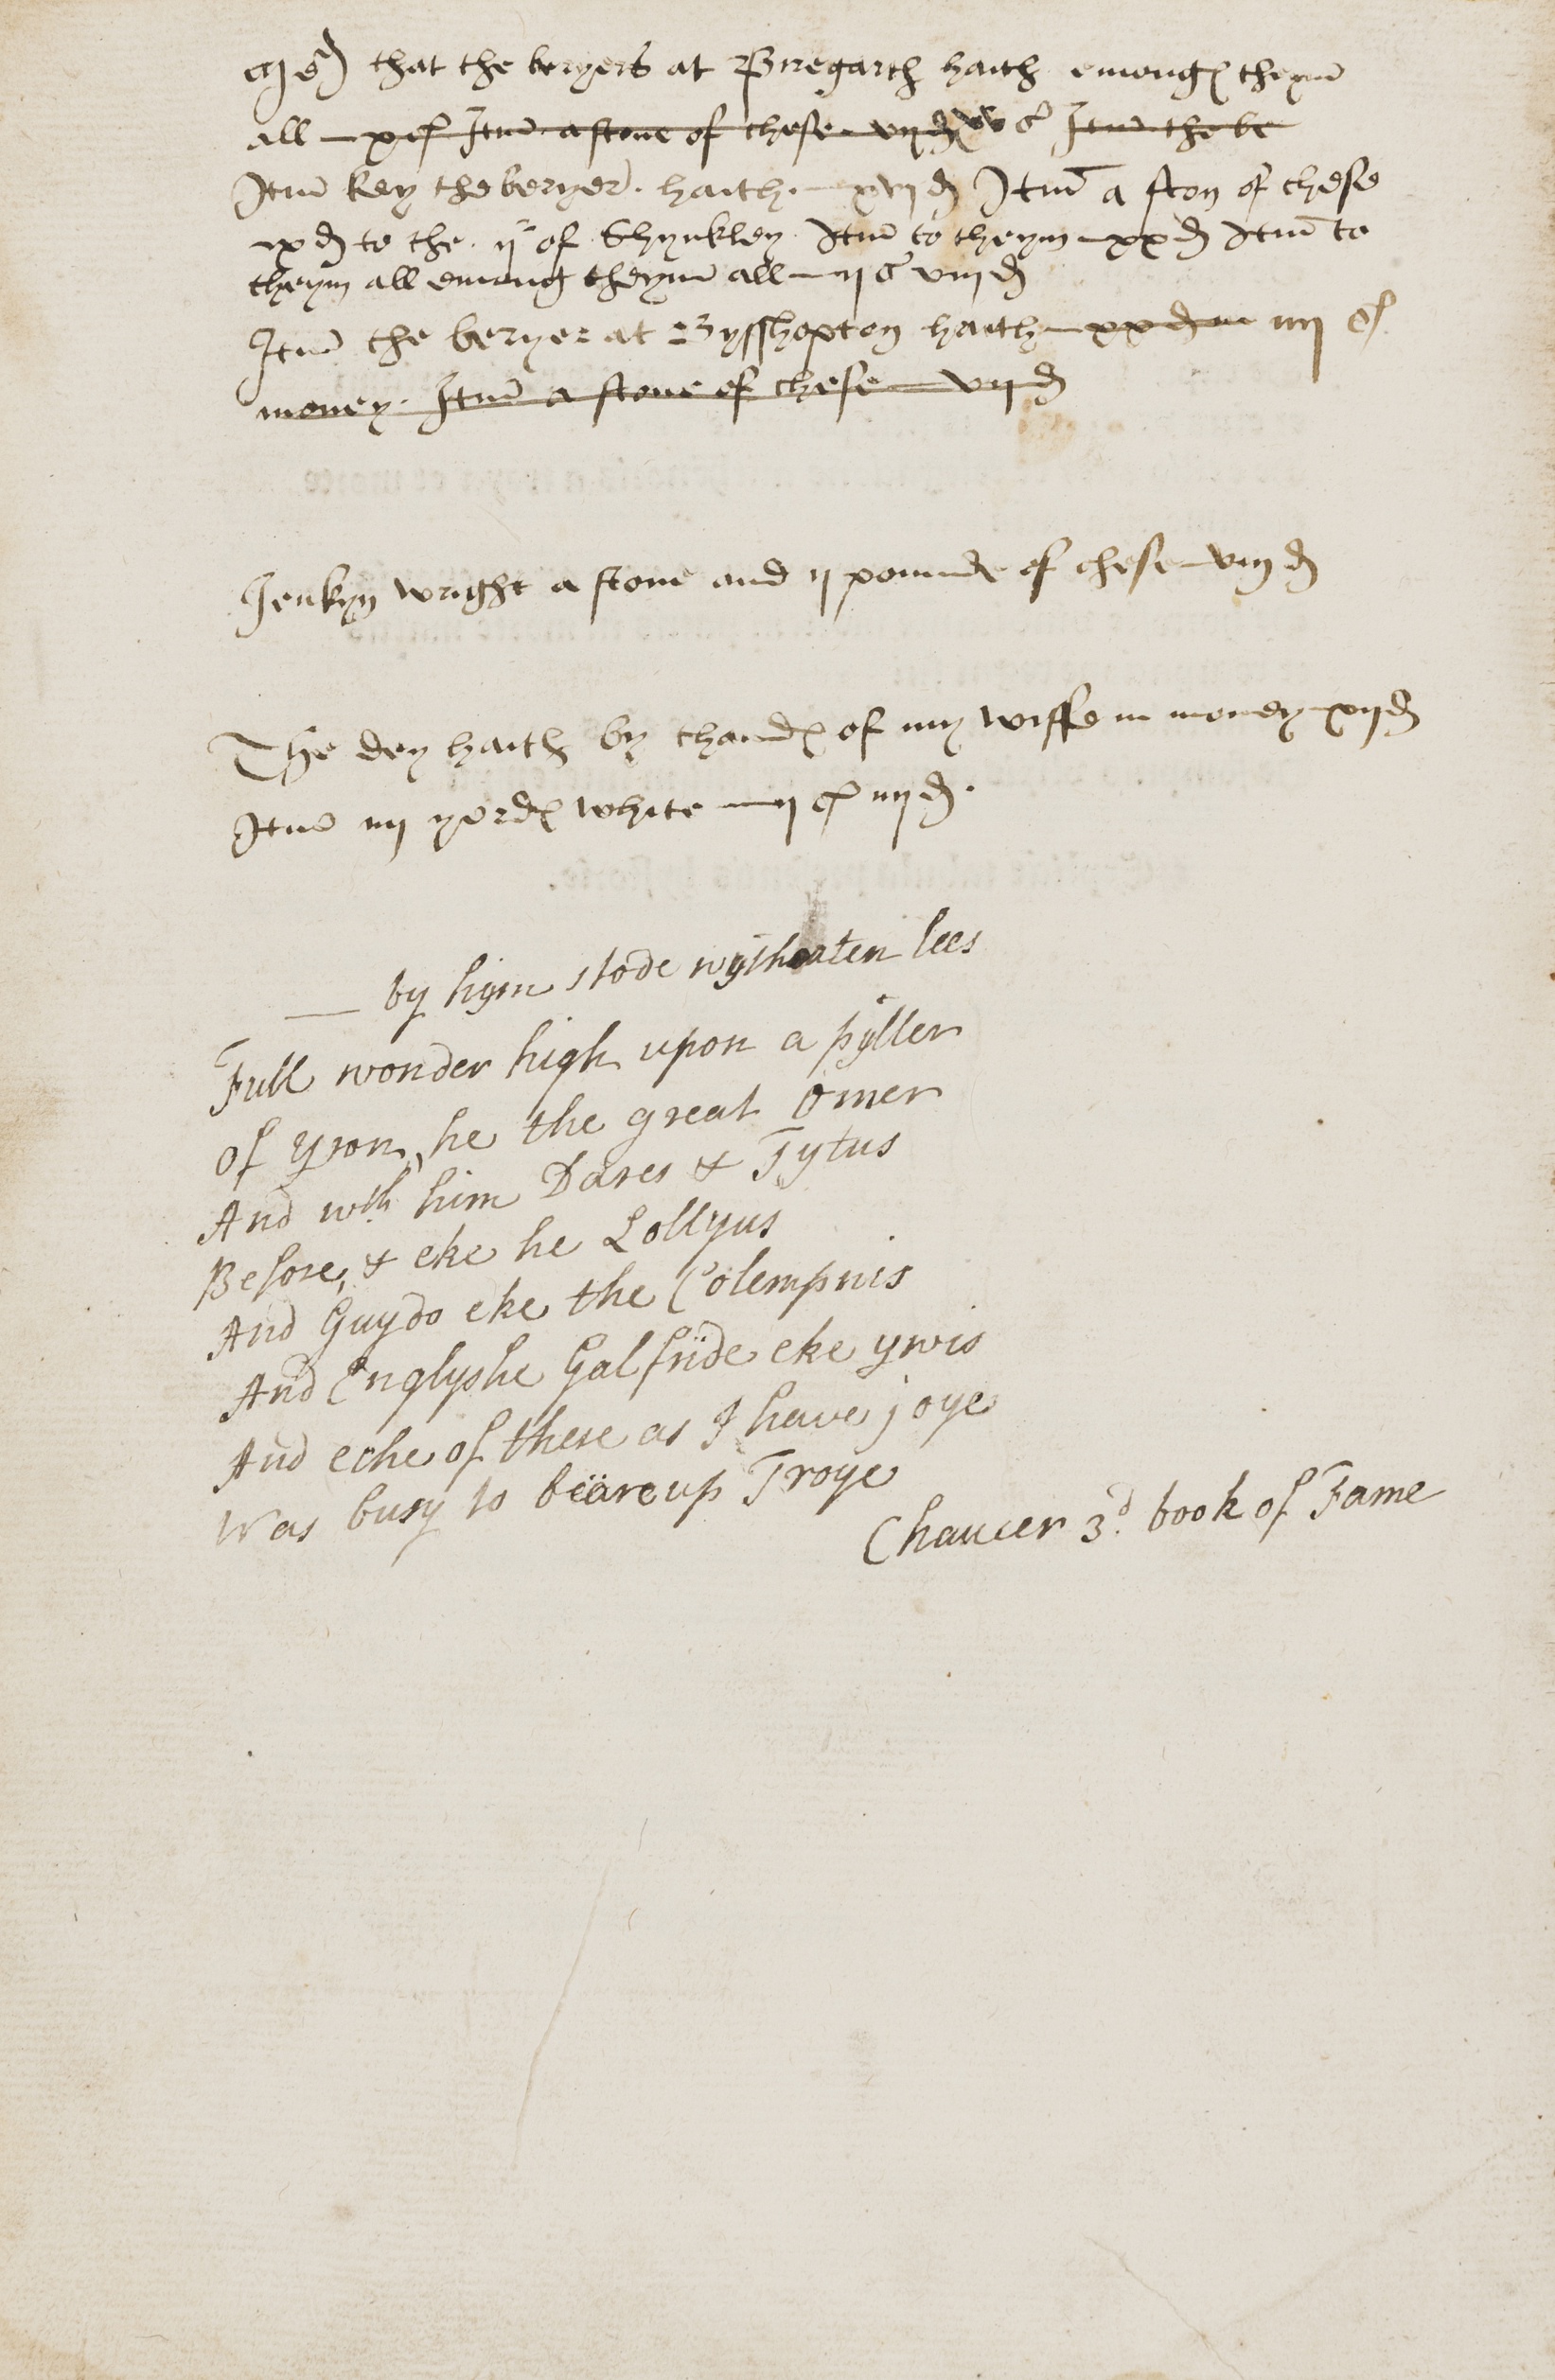 that the beryers at Pyregarth haith emong theym
all x s Itm a stone of chese vij d s Itm the be
Itm key the beryer haith xvj d Itm a ston of chese
ix d to the ij of Shynkley Itm to theym xx d Itm to
theym all emong theym all ij s viij d
Itm the beryer at Bysshopton haith xx d in iiij s
money Itm a stone of chese vij d
Jenkyn wright a stone and ij pounde of chese viij d
The dey haith by thand of my wiffe in money xij d
Itm iiij yerd white ij s iiij d
by hym stode wythouten lees
Full wonder high upon a pyller
Of Yron, he the great Omer
And wth him Dares & Tytus
Before, & eke he Lollyus
And Guydo eke the Colempnis
And Englyshe Galfride eke ywis
And eche of these as I have joye
Was busy to beare up Troye
Chaucer 3d book of Fame